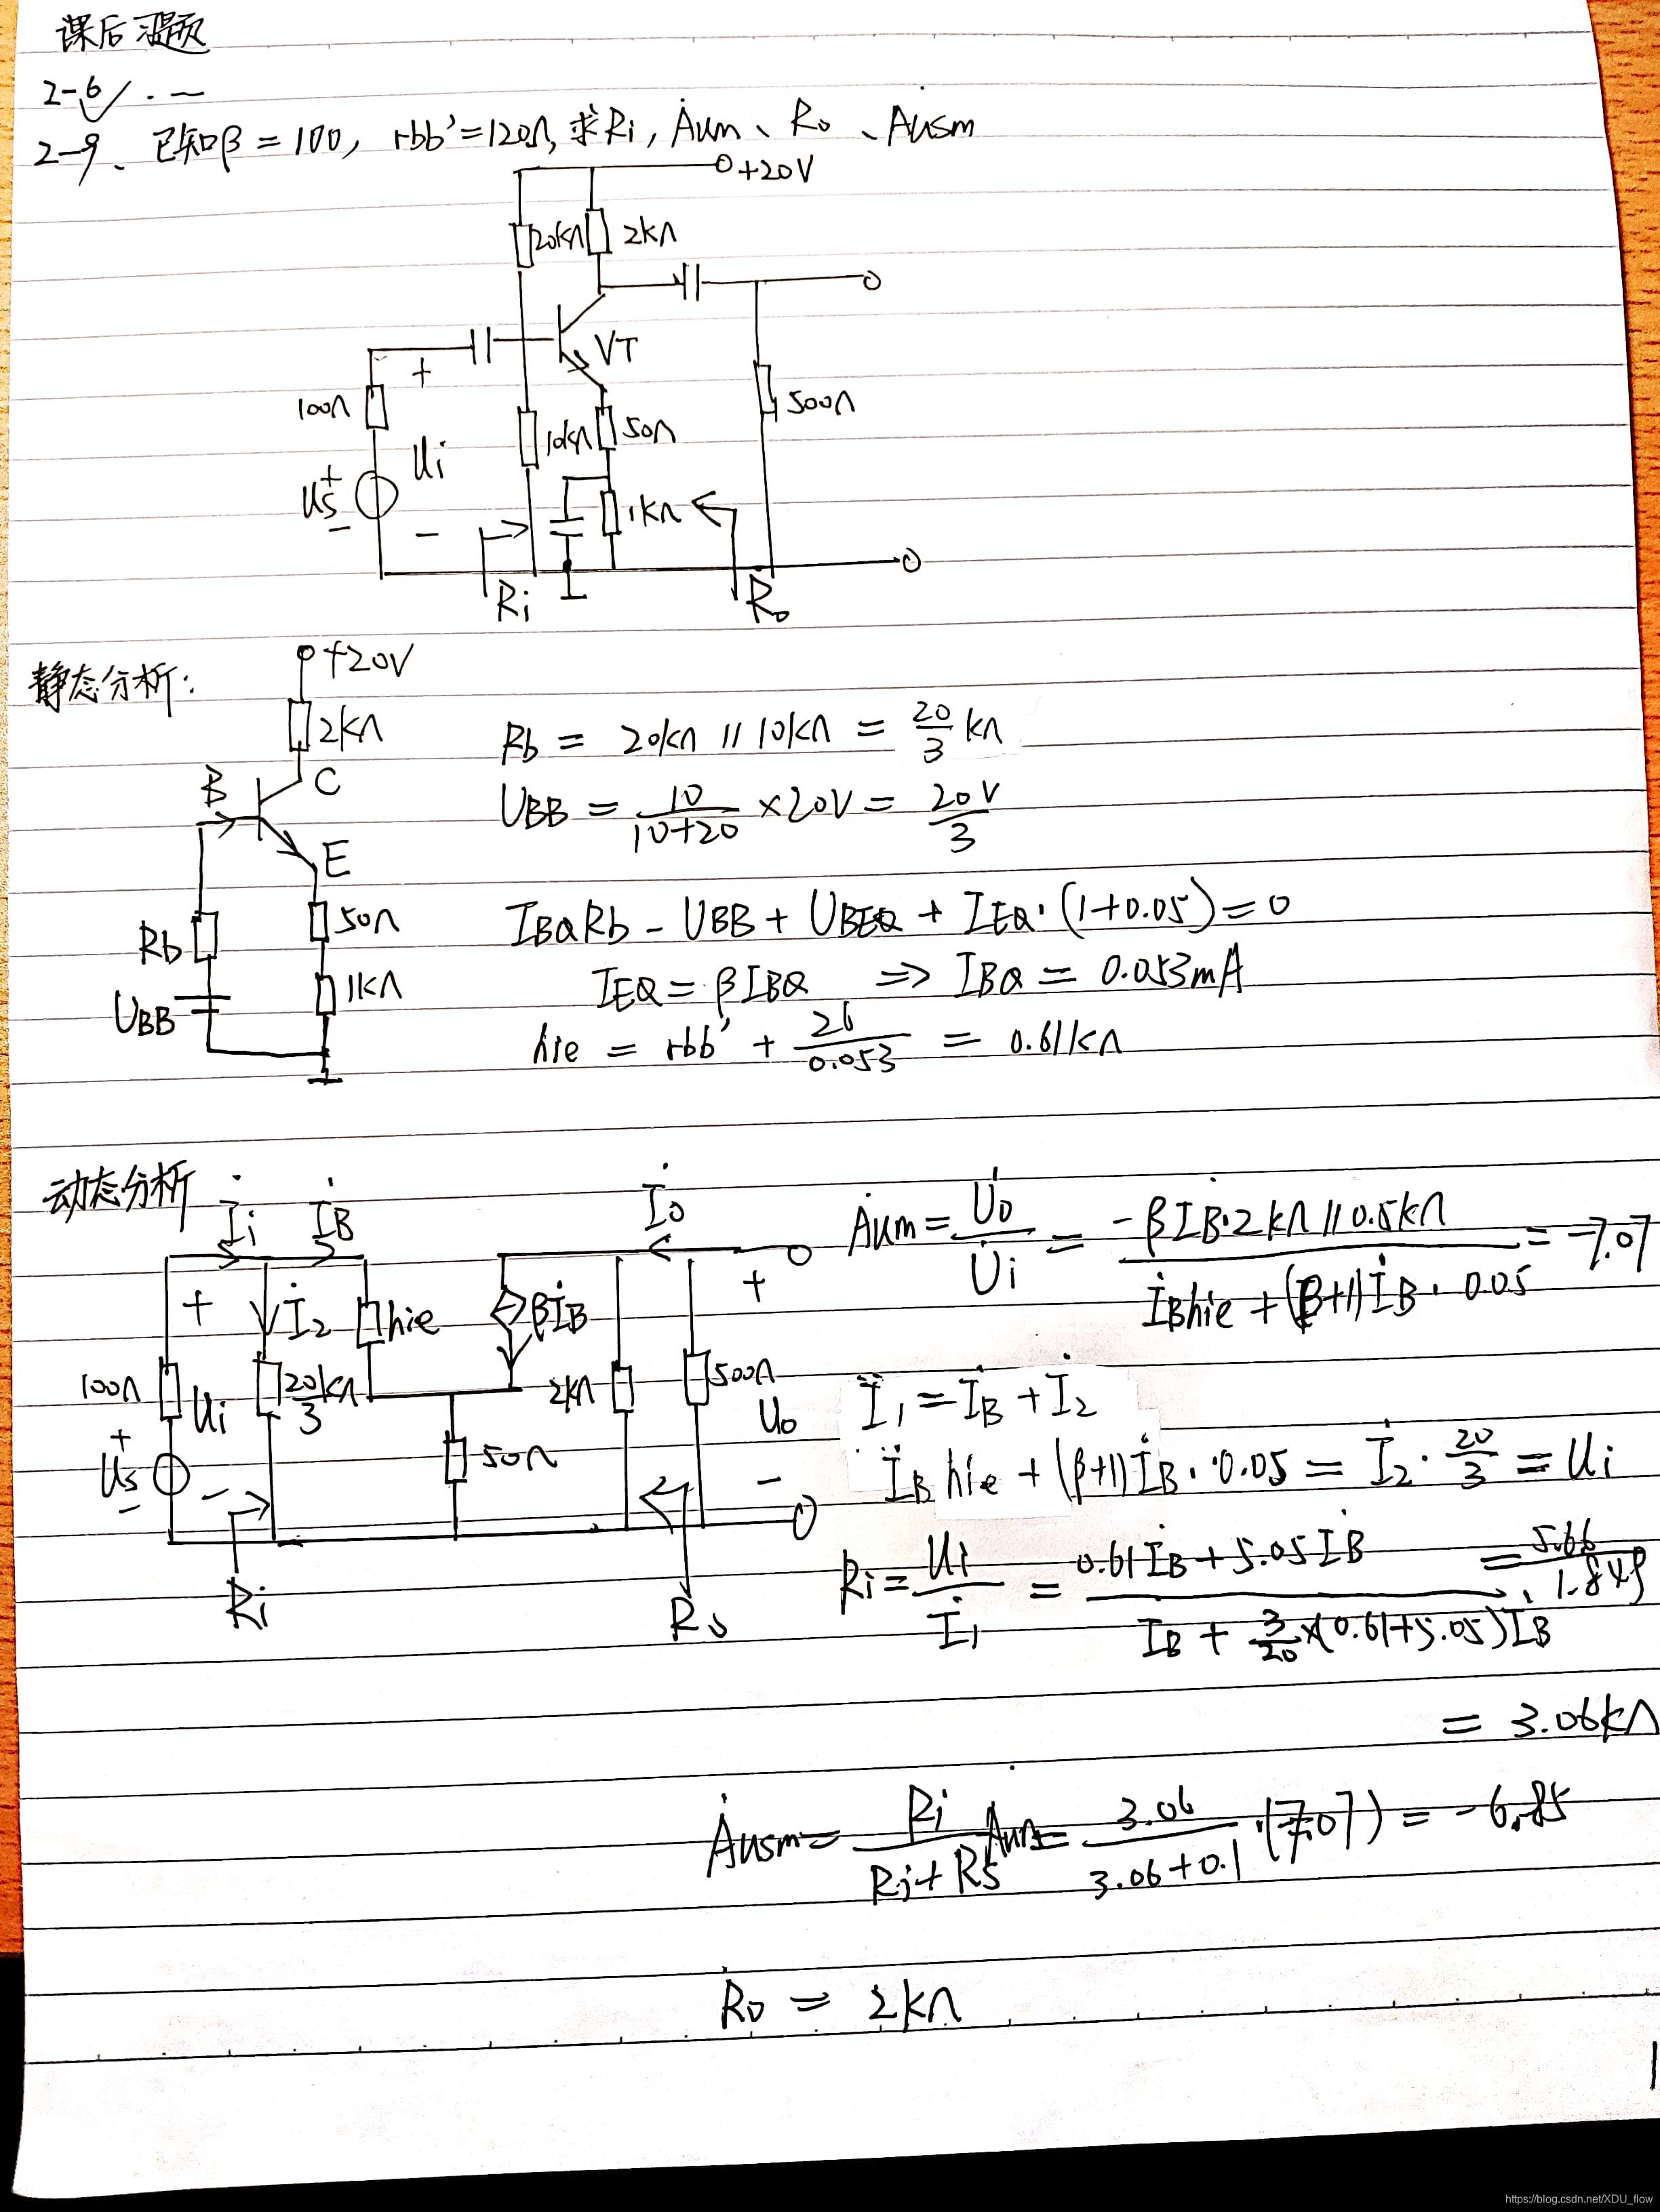 课后习题
2-6 ✓ . —
2-9、已知β=100, rbb'=120Ω, 求Ri, Ȧum、Ro、Ȧusm
+20V
20kΩ 2kΩ
VT
+
100Ω
Ui
10kΩ 50Ω
500Ω
Us
+
-
-
1kΩ
Ri
Ro
静态分析:
+20V
2kΩ
B C
E
50Ω
Rb
1kΩ
UBB
Rb = 20kΩ // 10kΩ = 20/3 kΩ
UBB = 10/(10+20) ×20V = 20V/3
IBQRb - UBB + UBEQ + IEQ·(1+0.05)=0
IEQ=βIBQ ⇒ IBQ = 0.053mA
hie = rbb' + 26/0.053 = 0.61kΩ
动态分析
İi İB İo
+ İ2 hie βİB +
100Ω Ui 20/3 kΩ 2kΩ 500Ω
Uo
50Ω
+
Us
-
-
-
Ri
Ro
Ȧum = U̇o/U̇i = -βİB·2kΩ//0.5kΩ / (İBhie+(β+1)İB·0.05) = -7.07
İ1 = İB + İ2
İB hie + (β+1)İB·0.05 = İ2·20/3 = Ui
Ri = Ui/İ1 = (0.61İB+5.05İB) / (İB + 3/20×(0.61+5.05)İB) = 5.66/1.849
= 3.06kΩ
Ȧusm = Ri/(Ri+Rs) Ȧum = 3.06/(3.06+0.1)·(-7.07) = -6.85
Ro = 2kΩ
1
https://blog.csdn.net/XDU_flow